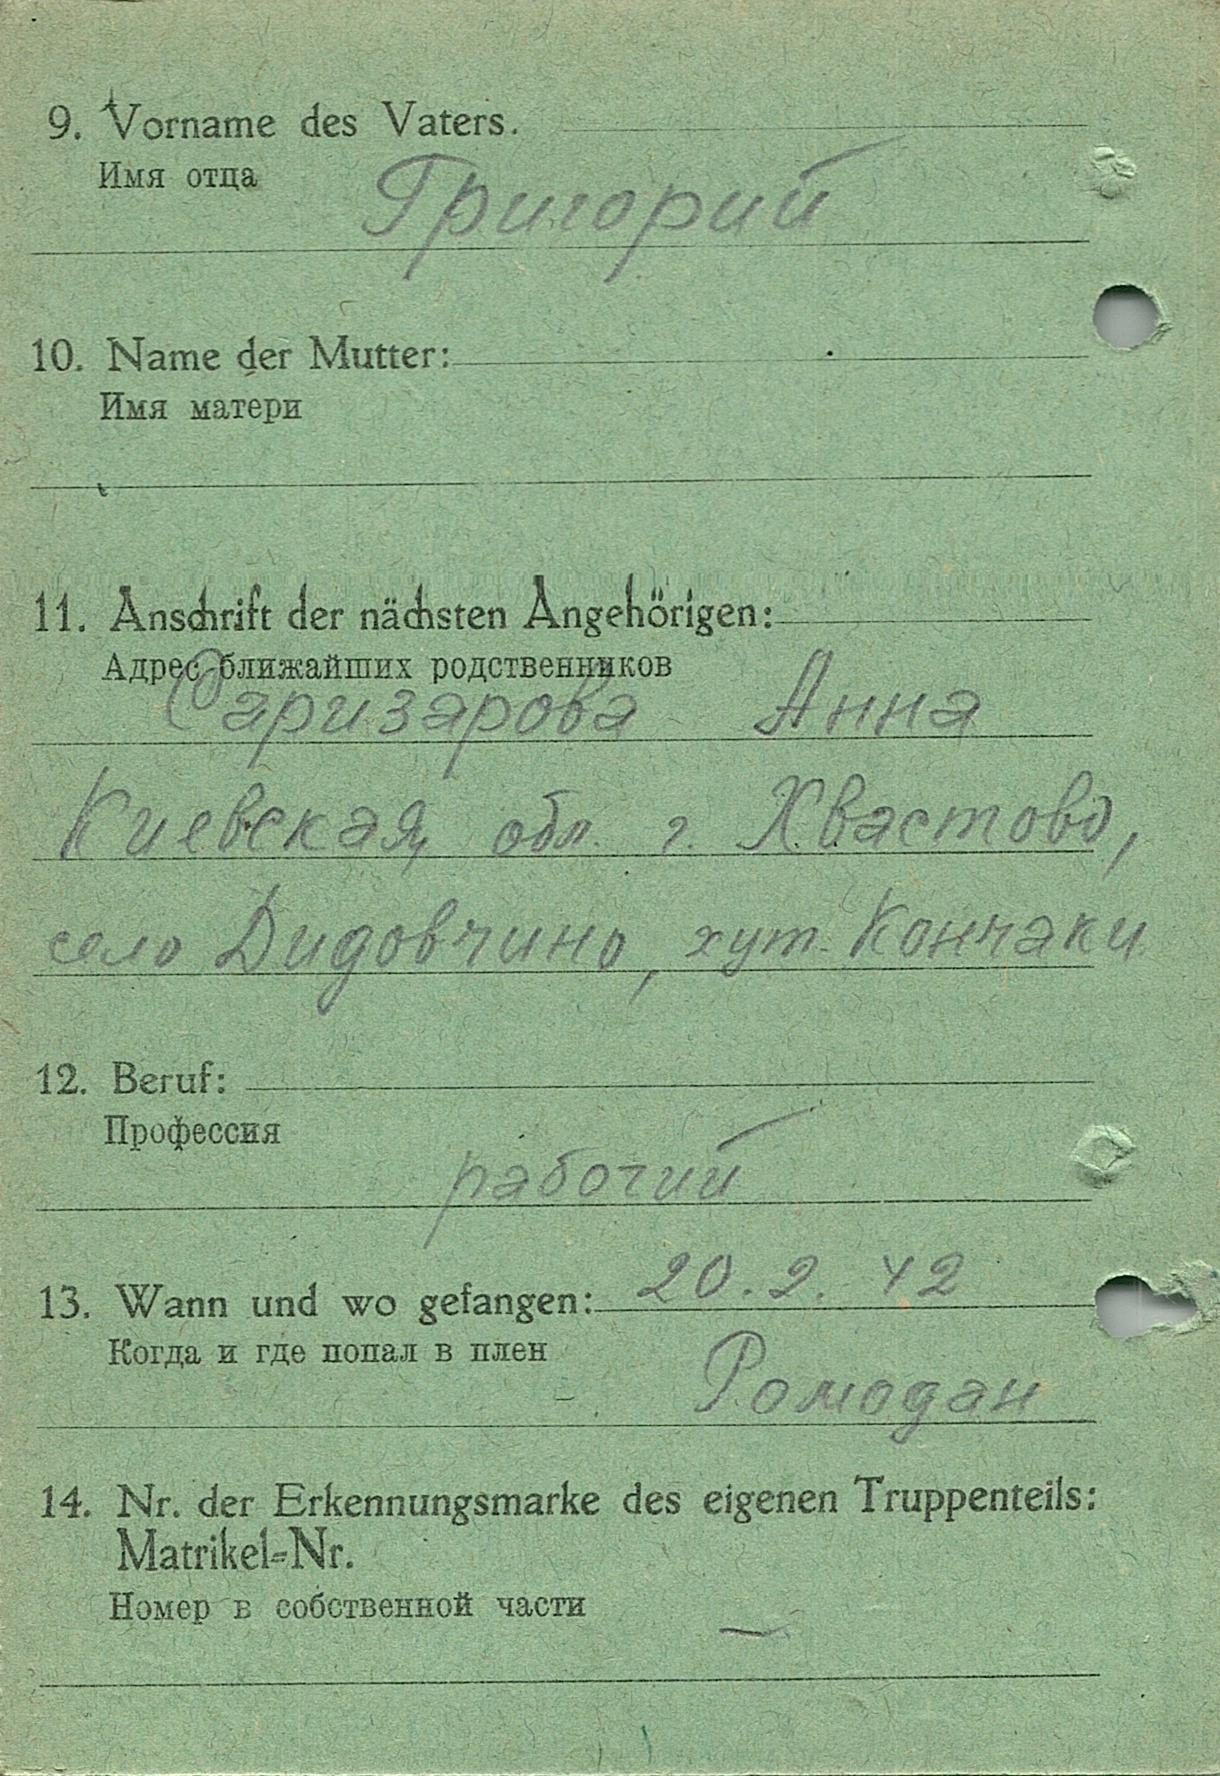 9. Vorname des Vaters.
Имя отца
Григорий
10. Name der Mutter:
Имя матери
11. Anschrift der nächsten Angehörigen:
Адрес ближайших родственников
Саризарова Анна
Киевская, обл. г. Хвастово,
село Дидовчино, хут. Кончаки
12. Beruf:
Профессия
рабочий
13. Wann und wo gefangen: 20. 2. 42
Когда и где попал в плен
Ромодан
14. Nr. der Erkennungsmarke des eigenen Truppenteils:
Matrikel-Nr.
Номер в собственной части
—